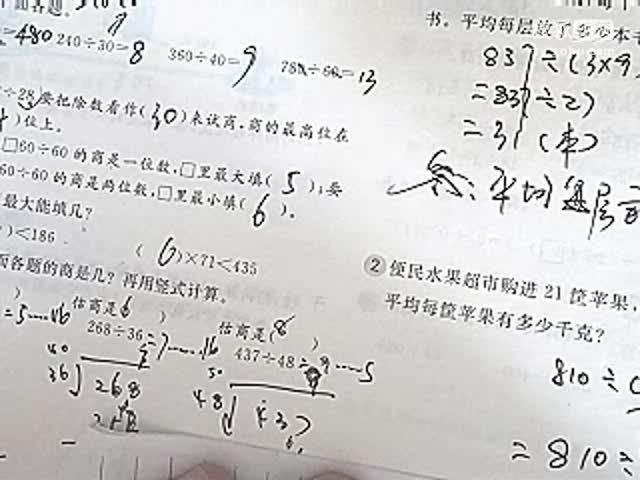 =480 240÷30=8 360÷40=9 780÷60=13
÷28要把除数看作(30)来试商,商的最高位在
)位上。
□60÷60的商是一位数,□里最大填(5);要
60÷60的商是两位数,□里最小填(6)。
最大能填几?
)<186 (6)×71<435
面各题的商是几?再用竖式计算。
) 估商是(6 估商是(8 )
=5……16 268÷36=7……16 437÷48=9……5
40 50
36 268 48 437
书。平均每层放了多少本书
837÷(3×9
=837÷27
=31(本)
答:平均每层
② 便民水果超市购进 21 筐苹果,
平均每筐苹果有多少千克?
810÷(
=810÷